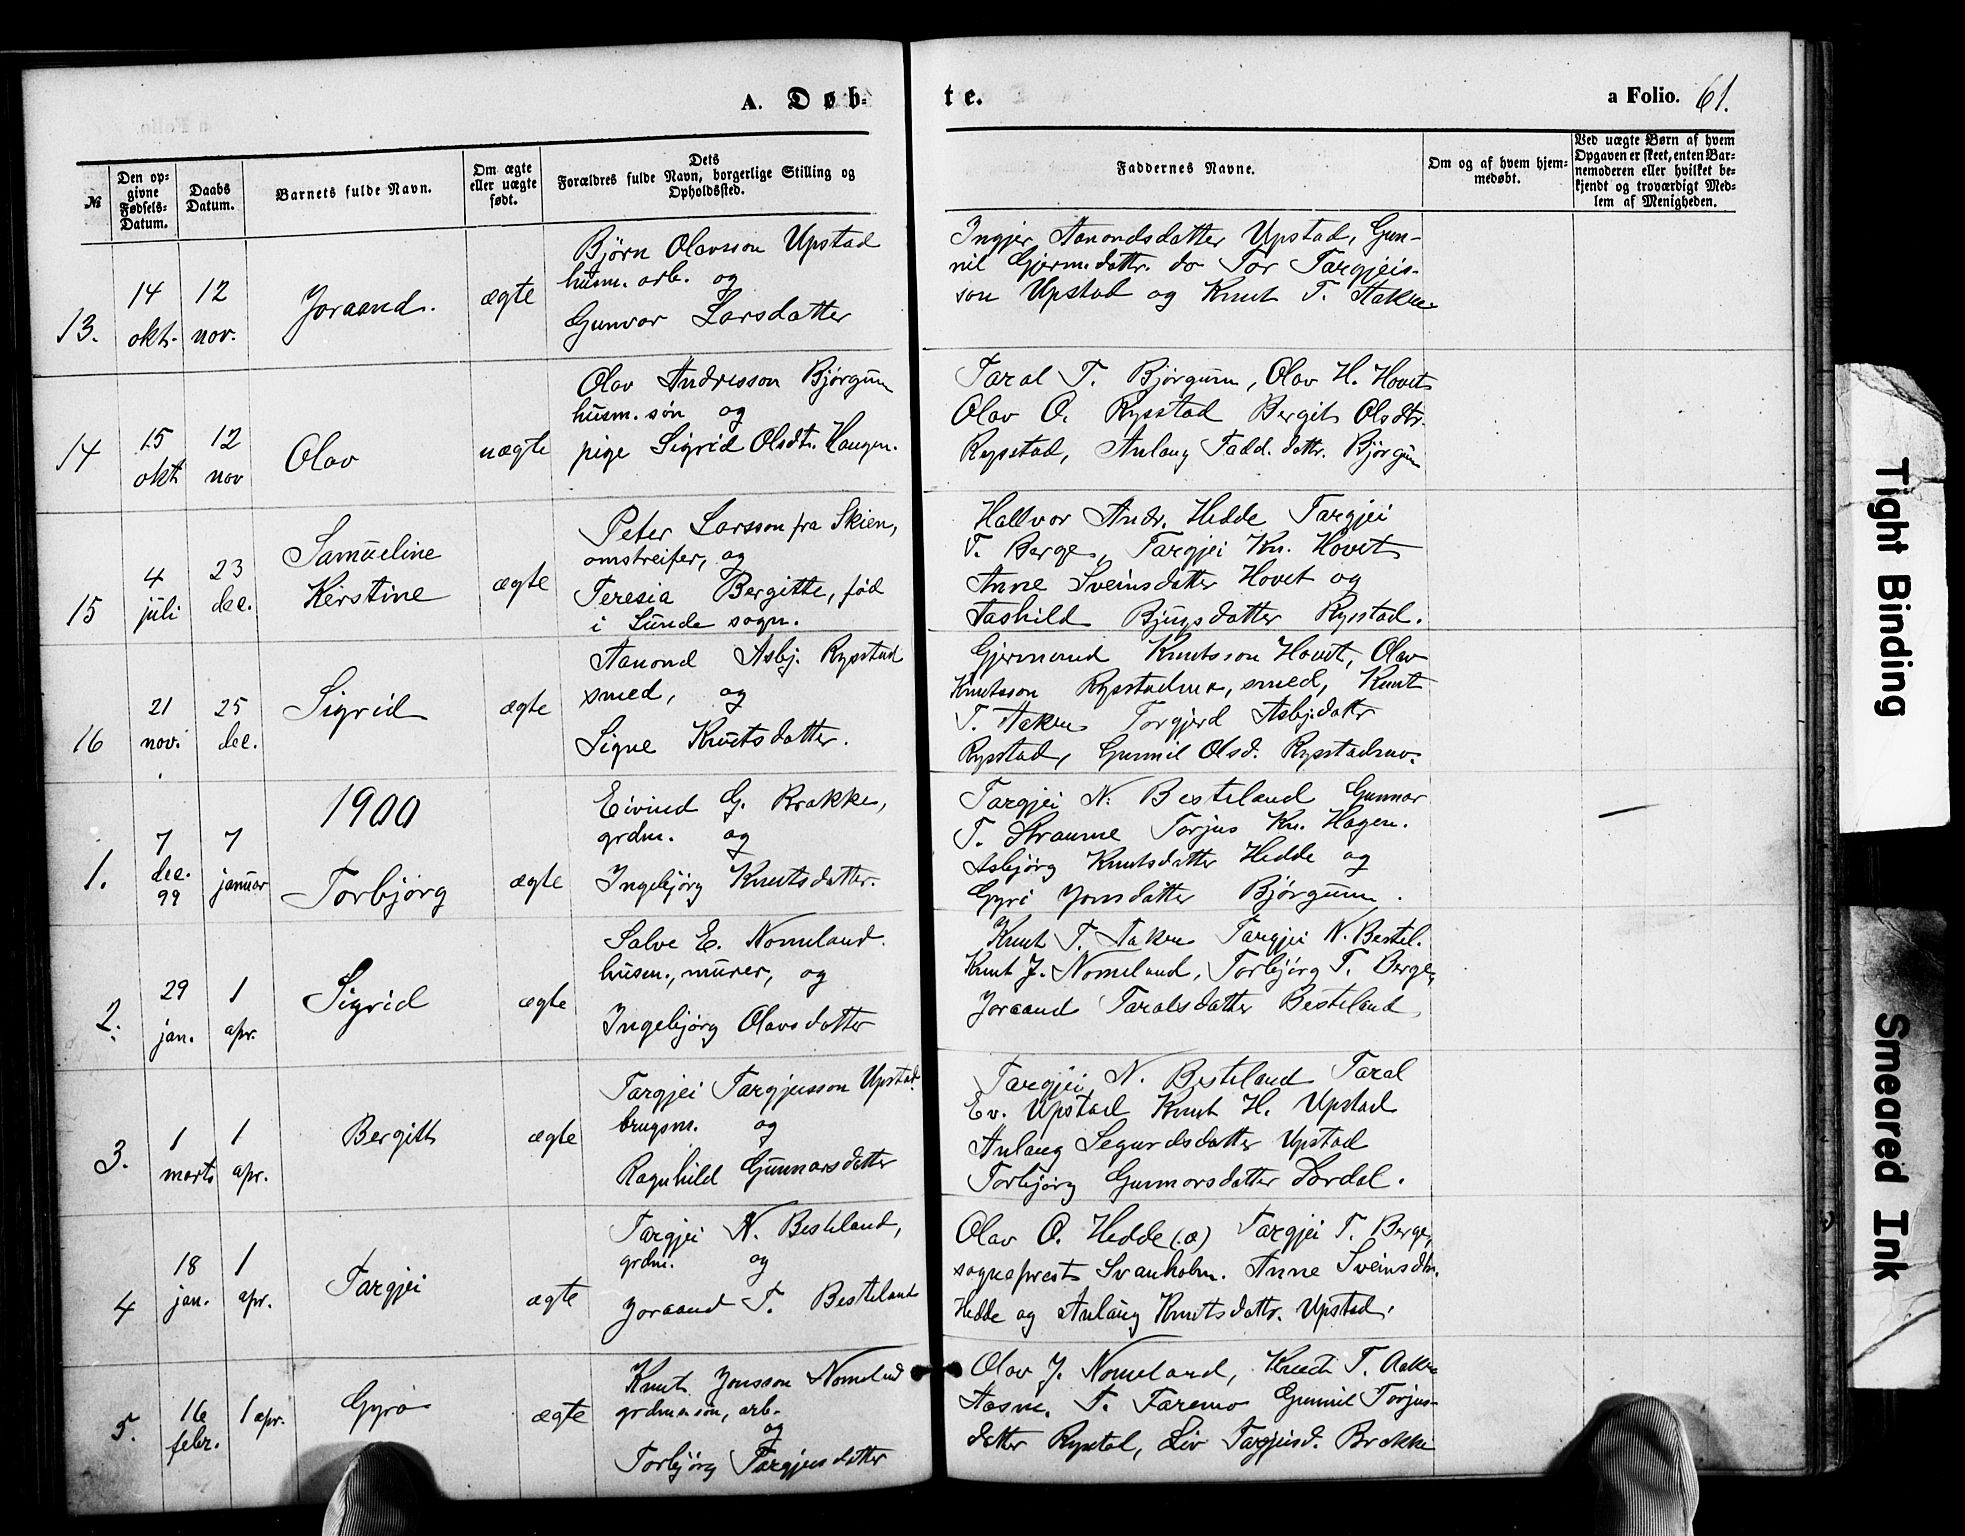 A. Døb-
te.
a Folio. 61.
№
Den op-
givne
Fødsels-
Datum.
Daabs
Datum.
Barnets fulde Navn.
Om ægte
eller uægte
født.
Dets
Forældres fulde Navn, borgerlige Stilling og
Opholdssted.
Faddernes Navne.
Om og af hvem hjem-
medøbt.
Ved uægte Børn af hvem
Opgaven er skeet, enten Bar-
nemoderen eller hvilket be-
kjendt og troværdigt Med-
lem af Menigheden.
13.
14
okt.
12
nov.
Joraand.
ægte
Bjørn Olavsson Upstad
husm. arb. og
Gunvor Larsdatter
Ingjer Aanondsdatter Upstad, Gun-
nil Gjerm.dattr. do Tor Targjeis-
son Upstad og Knut T. Aakre
14
15
okt
12
nov
Olav
uægte
Olav Andresson Bjørgum
husm. søn og
pige Sigrid Olsdtr. Haugen.
Taral T. Bjørgum, Olav H. Hovet
Olav O. Rysstad Bergit Olsdtr.
Rysstad, Anlaug Tadd. dattr. Bjørgum
15
4
juli
23
dec.
Samueline
Kirstine
ægte
Peter Larsson fra Skien,
omstreifer, og
Teresia Bergitte, fød
i Lunde sogn.
Hallvor Andr. Hedde Targjei
T. Berge, Targjei Kn. Hovet
Anne Sveinsdatter Hovet og
Aashild Bjugsdatter Rysstad.
16
21
nov.
25
dec.
Sigrid
ægte
Aanond Asbj. Rysstad
smed, og
Signe Knutsdatter.
Gjermund Knutsson Hovet, Olav
Knutsson Rysstadmo, smed, Knut
T. Aakre Torgjerd Asbj.datter
Rysstad, Gunnil Olsd. Rysstadmo.
1900
1.
7
dec.
99
7
januar
Torbjørg
ægte
Eivind G. Brokke,
grdm. og
Ingebjørg Knutsdatter.
Targjei N. Besteland Gunnar
T. Straume Torjus Kn. Hagen.
Asbjørg Knutsdatter Hedde og
Gyri Jonsdatter Bjørgum.
2.
29
jan.
1
apr.
Sigrid
ægte
Salve E. Nomeland.
husm., murer, og
Ingebjørg Olavsdatter
Knut T. Aakre Targjei N. Bestel.
Knut J. Nomeland, Torbjørg T. Berge,
Joraand Taralsdatter Besteland
3.
1
marts
1
apr.
Bergitt
ægte
Targjei Targjusson Upstad
brugsm. og
Ragnhild Gunnarsdatter
Targjei N. Besteland Taral
Ev. Upstad Knut H. Upstad
Anlaug Segurdsdatter Upstad
Torbjørg Gunnarsdatter Dordal.
4
18
jan.
1
apr.
Targjei
ægte
Targjei N. Besteland,
grdm. og
Joraand T. Besteland
Olav O. Hedde (.a) Targjei T. Berge,
sogneprest Svanholm. Anne Sveinsdtr.
Hedde og Anlaug Knutsdattr. Upstad.
5.
16
febr.
1 apr.
Gyro
ægte
Knut Jonsson Nomeland
grdmansøn, arb.
og
Torbjørg Targjusdatter
Olav J. Nomeland, Knut T. Aakre
Aasm. T. Faremo Gunnil Torjus-
datter Rysstad, Liv Targjusd. Brokke
Tight Binding
Smeared Ink